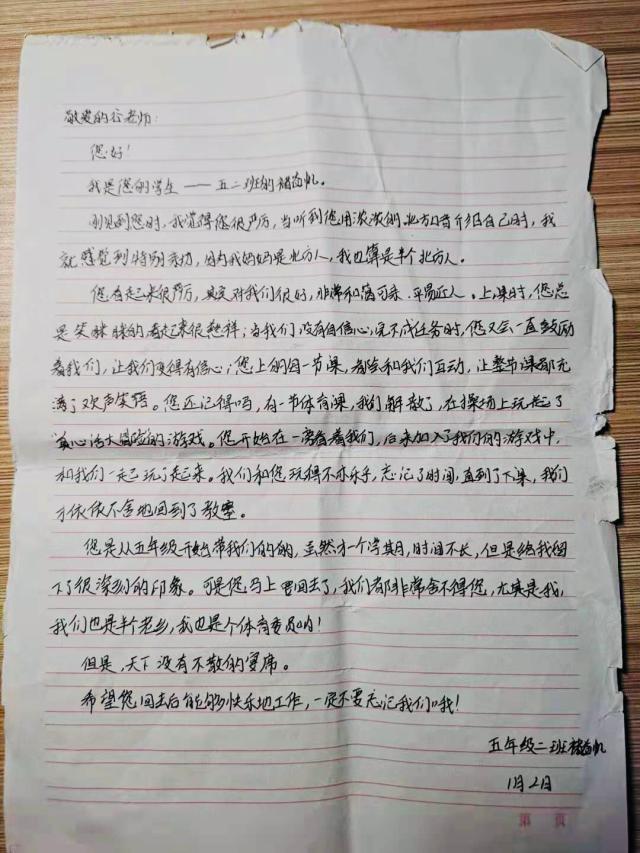 敬爱的谷老师：
您好！
我是您的学生——五二班的褚帆。
刚见到您时，我觉得您很严厉，当听到您用浓浓的北方口音介绍自己时，我
就感觉到特别亲切，因为我妈妈是北方人，我也算是半个北方人。
您看起来很严厉，其实对我们很好，非常和蔼可亲、平易近人。上课时，您总
是笑眯眯的看起来很慈祥；当我们没有自信心，完不成任务时，您又会一直鼓励
着我们，让我们变得有信心；您上的每一节课，都会和我们互动，让整节课都充
满了欢声笑语。您还记得吗，有一节体育课，我们解散了，在操场上玩起了
真心话大冒险的游戏。您开始在一旁看着我们，后来加入了我们的游戏中，
和我们一起玩了起来。我们和您玩得不亦乐乎，忘记了时间，直到了下课，我们
才依依不舍地回到了教室。
您是从五年级开始带我们的的，虽然才一个学期，时间不长，但是给我留
下了很深刻的印象。可是您马上要回去了，我们都非常舍不得您，尤其是我，
我们也是半个老乡，我也是个体育委员呐！
但是，天下没有不散的宴席。
希望您回去后能够快乐地工作，一定不要忘记我们哦！
五年级二班褚帆
1月2日
第 页